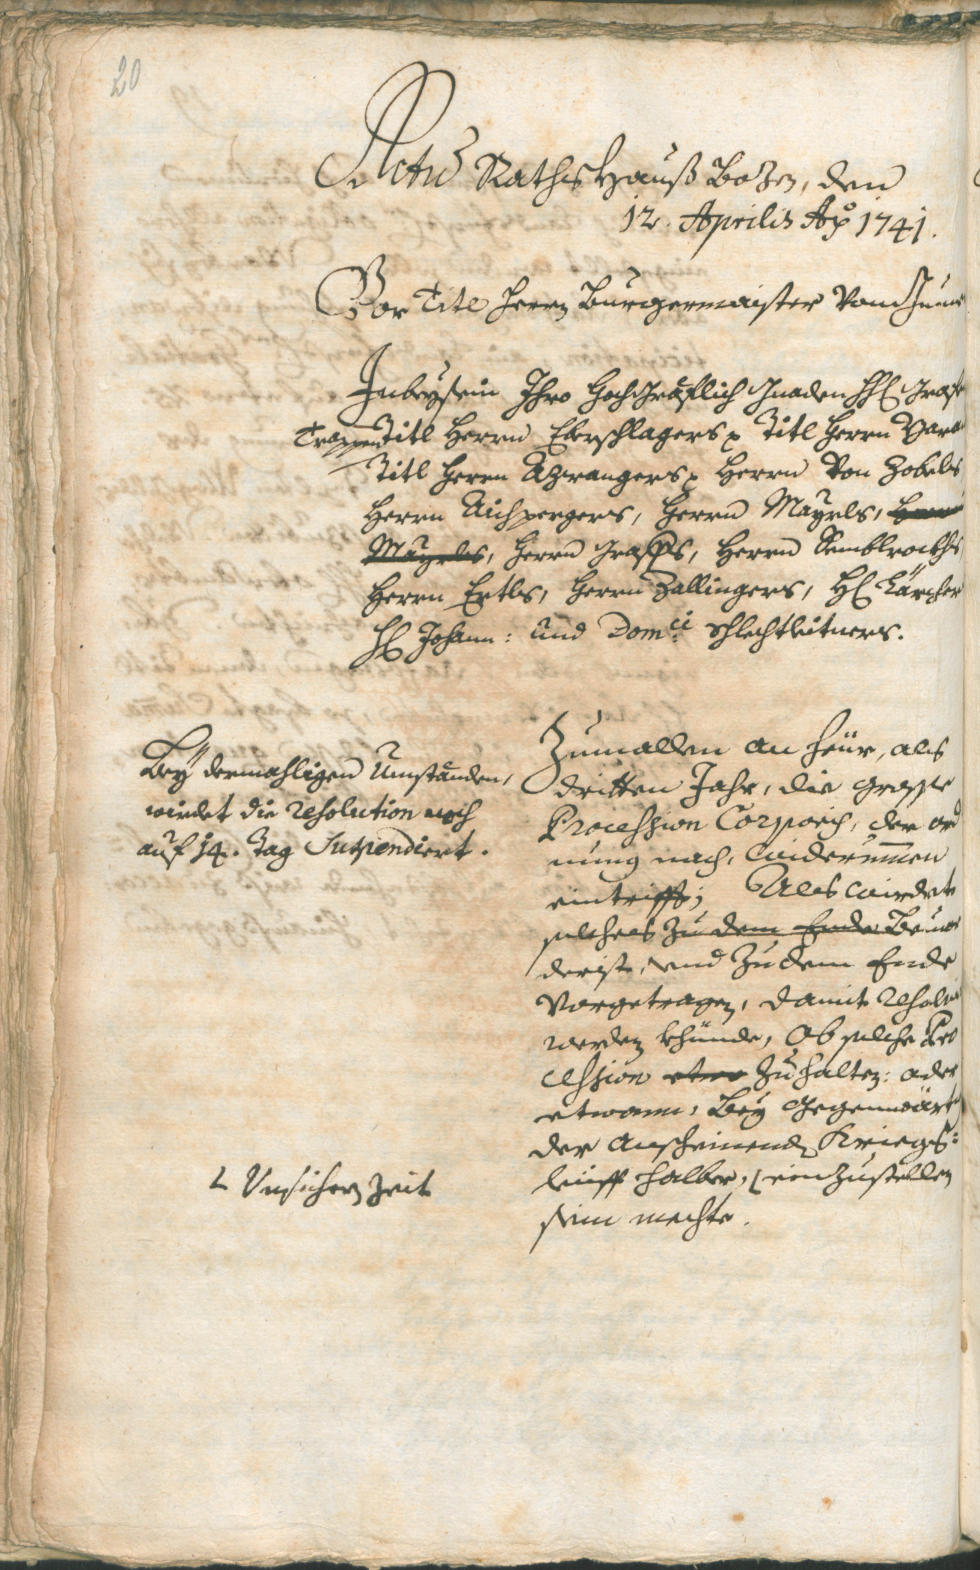 20
Actu Raths Hauß Bozen, den
12. Aprilis Ao 1741.
Vor Titl Herrn Burgermaister Von
Inbeysein Ihro Hochgräflich Gnaden H: Grafen
Trappen Titl Herrn Eberschlagers p Titl Herrn
Titl Herrn Azwangers p Herrn Von Zobels
Herrn Aichpergers, Herrn Mayrls, Herrn
Mayrls, Herrn Graffs, Herrn Semblrockhs
Herrn Ertls, Herrn Zallingers, H: Kärcher
H: Johann: und Domci: Schlechtleitners.
Bey dermahligen Umständen,
wirdet die resolution noch
auf 14. Tag Suspendiert.
Zumallen an heür, als
dritten Jahr, die grosse
Procession Corporis, der ord
nung nach, widerumben
eintrifft; Als wirdet
solches zu dem Ende
derist, und zu dem Ende
Vorgetragen, damit resolvi
werden khünde, Ob solche Pro
cession etwo zuhalten: oder
etwann, bey gegenwärt
der anscheinenden Kriegs=
leüff halber, ein zustellen
sein mechte.
Unsichern Zeit